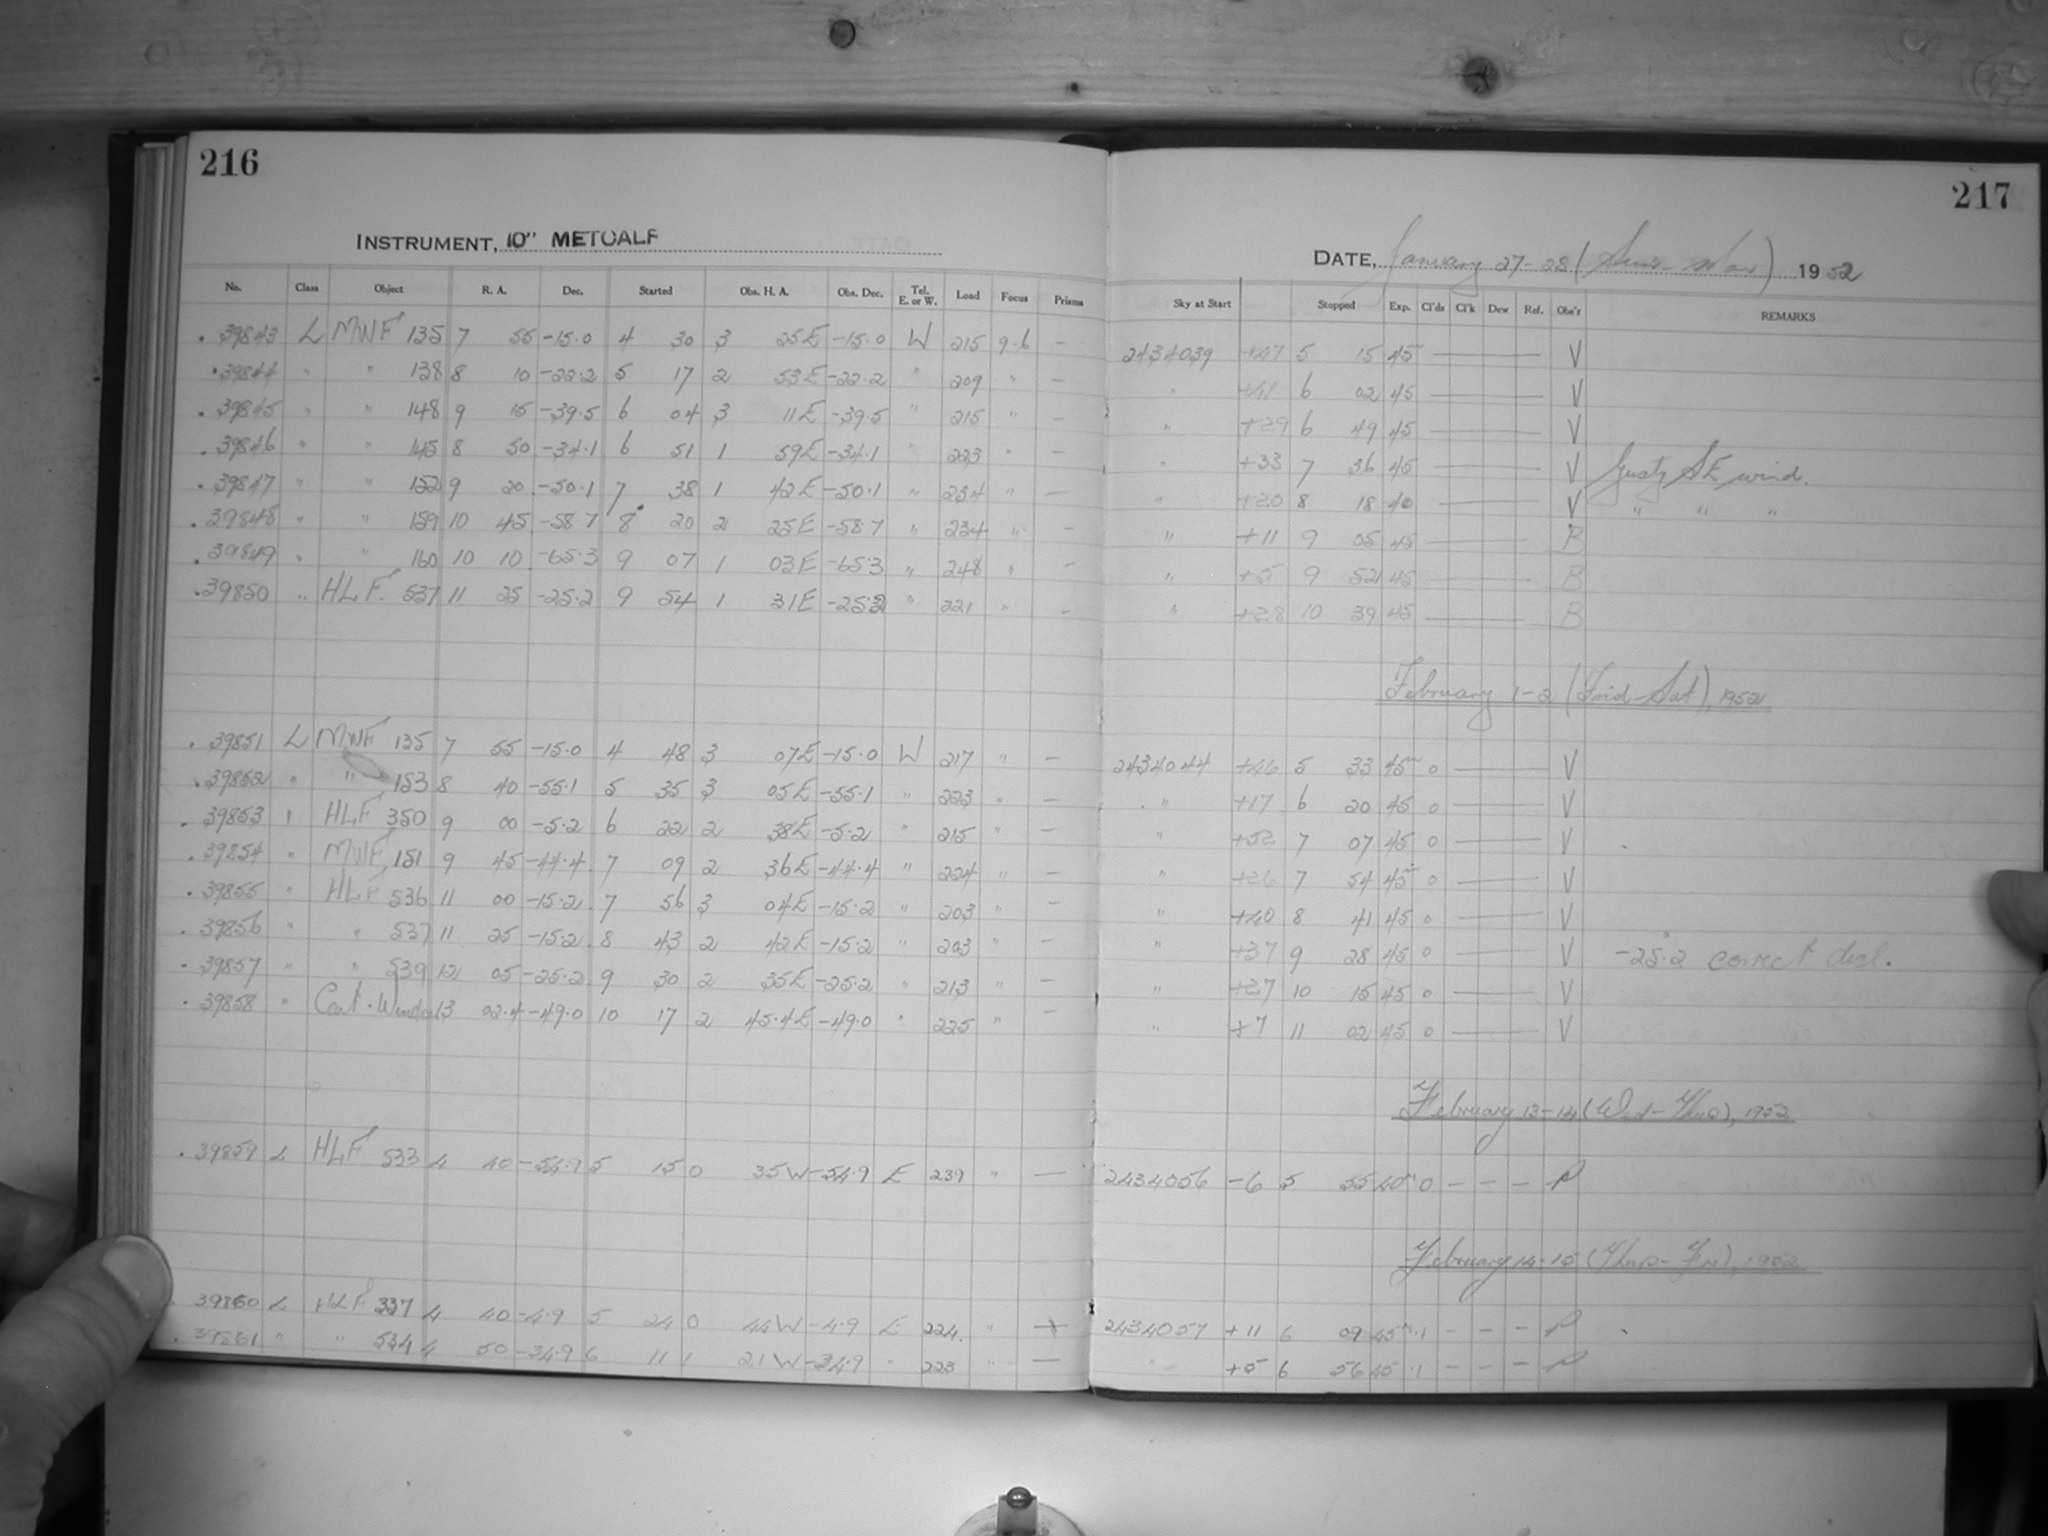 216
INSTRUMENT, 10" METCALF
No. Class Object R. A. Dec. Started Obs. H. A. Obs. Dec. Tel. E. or W. Load Focus Prisms
39843 L MWF 135 7 55 -15.0 4 30 3 25E -15.0 W 215 9.6 -
39844 " " 138 8 10 -22.2 5 17 2 53E -22.2 " 209 " -
39845 " " 148 9 15 -39.5 6 04 3 11E -39.5 " 215 " -
39846 " " 145 8 50 -34.1 6 51 1 59E -34.1 " 223 " -
39847 " " 152 9 20 -50.1 7 38 1 42E -50.1 " 234 " -
39848 " " 159 10 45 -58.7 8 20 2 25E -58.7 " 234 " -
39849 " " 160 10 10 -65.3 9 07 1 03E -65.3 " 248 " -
39850 " HLF. 537 11 25 -25.2 9 54 1 31E -25.2 " 221 " -
39851 L MWF 135 7 55 -15.0 4 48 3 07E -15.0 W 217 " -
39852 " " 153 8 40 -55.1 5 35 3 05E -55.1 " 223 " -
39853 " HLF 350 9 00 -5.2 6 22 2 38E -5.2 " 215 " -
39854 " MWF 151 9 45 -44.4 7 09 2 36E -44.4 " 224 " -
39855 " HLF 536 11 00 -15.2 7 56 3 04E -15.2 " 203 " -
39856 " " 537 11 25 -15.2 8 43 2 42E -15.2 " 203 " -
39857 " " 539 12 05 -25.2 9 30 2 35E -25.2 " 213 " -
39858 " 13 02.4 -49.0 10 17 2 45.4E -49.0 " 225 "
39859 L HLF 533 4 40 -54.9 5 15 0 35W -54.9 E 239 " -
39860 L HLF 337 4 40 -4.9 5 24 0 44W -4.9 E 224. "
39861 " " 534 4 50 -34.9 6 11 1 21W -34.9 " 223 " -
217
DATE, January 27-28 (Sun-Mon) 1952
Sky at Start Stopped Exp. Cl'ds Cl'k Dew Ref. Obs'r REMARKS
2434039 +47 5 15 45 V
" +41 6 02 45 V
" +29 6 49 45 V
" +33 7 36 45 V Gusty SE wind.
" +20 8 18 40 V " " "
" +11 9 05 45 B
" +5 9 52 45 B
" +28 10 39 45 B
February 1-2 (Frid-Sat), 1952
2434044 +46 5 33 45 0 V
" +17 6 20 45 0 V
" +52 7 07 45 0 V
" +26 7 54 45 0 V
" +40 8 41 45 0 V
" +37 9 28 45 0 V -25.2 correct decl.
" +27 10 15 45 0 V
" +7 11 02 45 0 V
February 13-14 (Wed-Thur), 1952
2434056 -6 5 55 40 0 - - - P
February 14-15 (Thur-Fri), 1952
2434057 +11 6 09 45 .1 - - - P
" +5 6 56 45 .1 - - - P